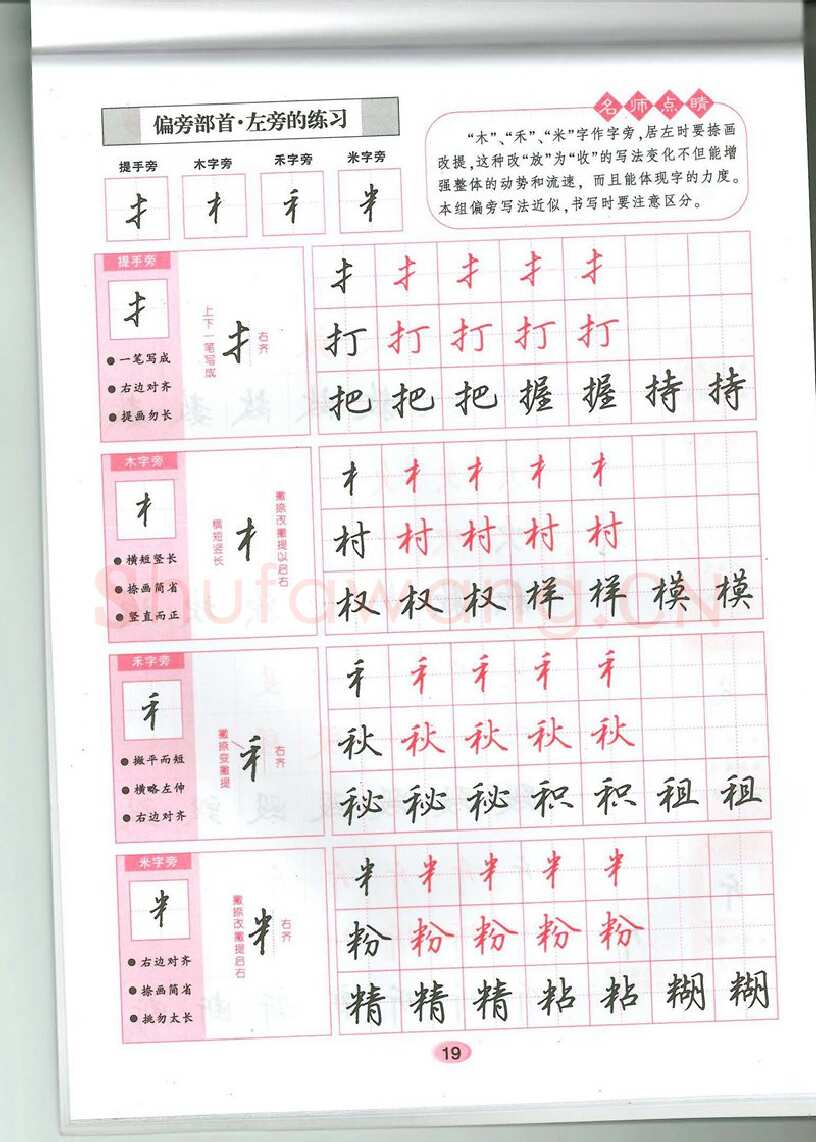 偏旁部首·左旁的练习
名师点睛
“木”、“禾”、“米”字作字旁，居左时要捺画
改提，这种改“放”为“收”的写法变化不但能增
强整体的动势和流速，而且能体现字的力度。
本组偏旁写法近似，书写时要注意区分。
提手旁 木字旁 禾字旁 米字旁
提手旁
扌
一笔写成
右边对齐
提画勿长
上下一笔写成
右齐
扌 扌 扌 扌 扌
打 打 打 打 打
把 把 把 握 握 持 持
木字旁
横短竖长
捺画简省
竖直而正
横短竖长
撇捺改撇提以启右
村 村 村 村 村
权 权 权 样 样 模 模
Shufawang.CN
禾字旁
撇平而短
横略左伸
右边对齐
撇捺变撇提
右齐
秋 秋 秋 秋 秋
秘 秘 秘 积 积 租 租
米字旁
右边对齐
捺画简省
挑勿太长
撇捺改撇提启右
右齐
粉 粉 粉 粉 粉
精 精 精 粘 粘 糊 糊
19